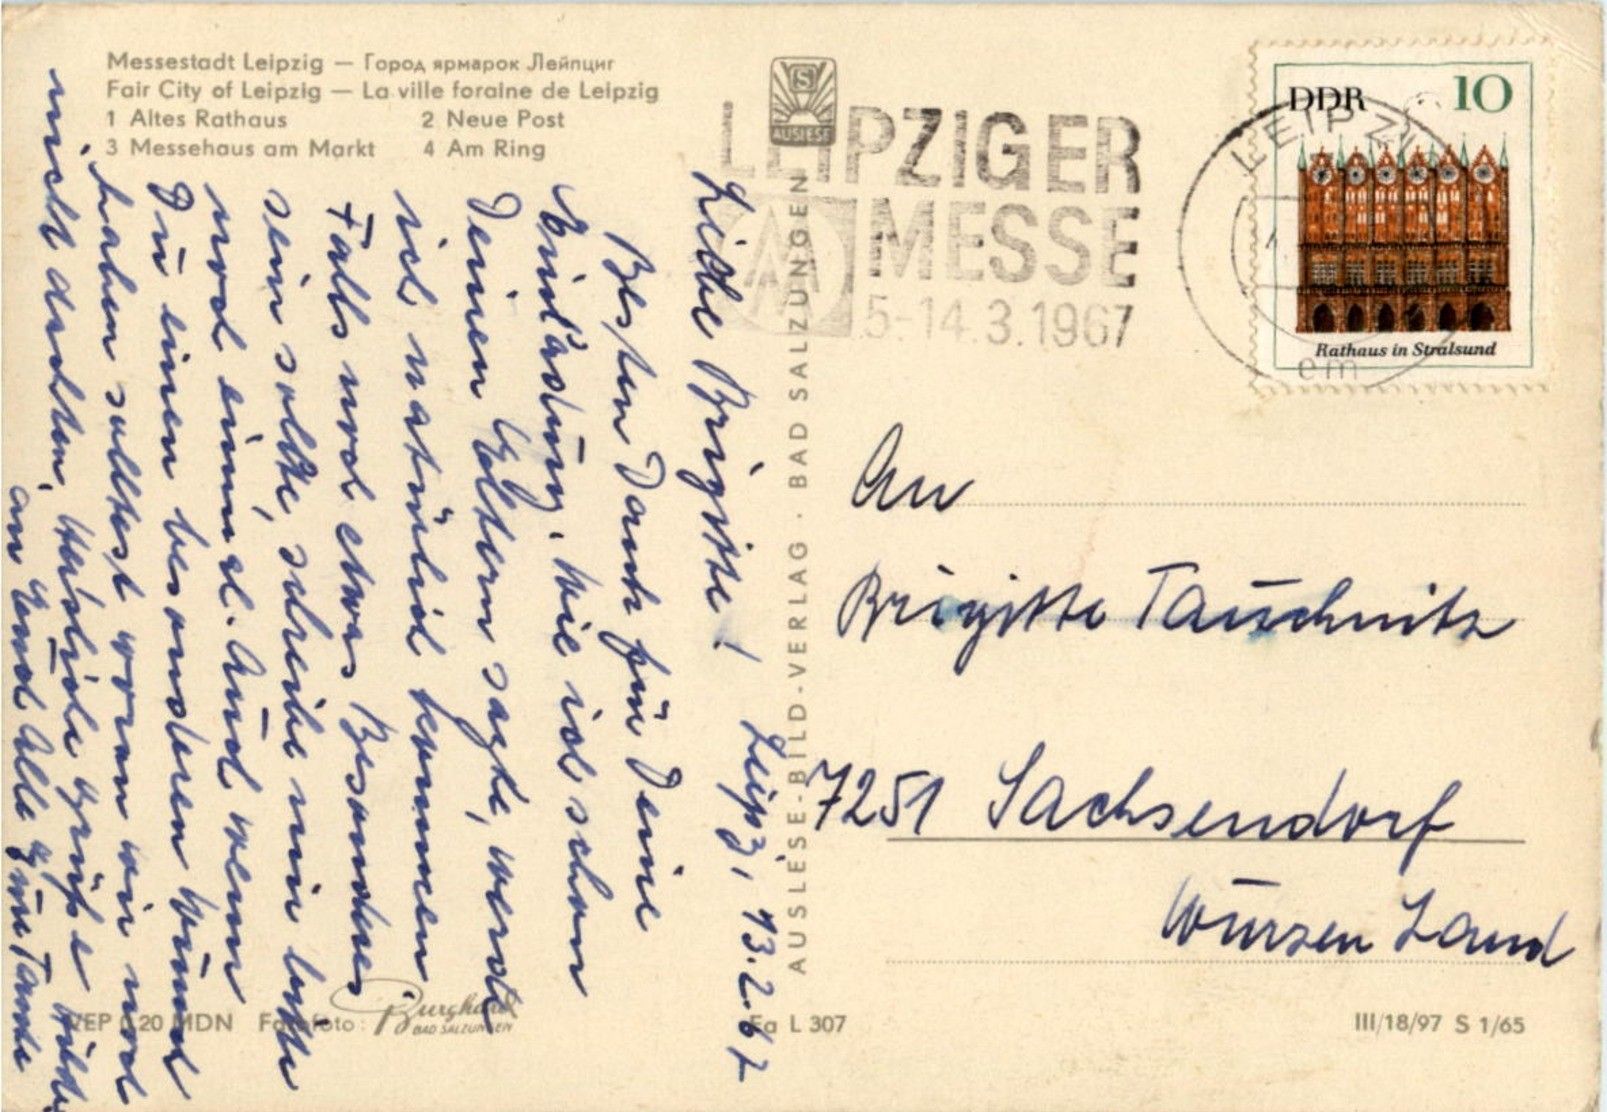 Messestadt Leipzig — Город ярмарок Лейпциг
Fair City of Leipzig — La ville foraine de Leipzig
1 Altes Rathaus 2 Neue Post
3 Messehaus am Markt 4 Am Ring
AUSLESE
LEIPZIGER
MESSE
5-14.3.1967
DDR 10
Rathaus in Stralsund
LEIPZIG
em
Leipzig, 13.2.67
Liebe Brigitte!
Besten Dank für Deine
Einladung. Wie ich schon
Deinen Eltern sagte, werde
ich natürlich kommen.
Falls noch etwas Besonderes
sein sollte, schreibe mir bitte
noch einmal. Auch wenn
Du einen besonderen Wunsch
haben solltest woran wir noch
nicht dachten. Herzliche Grüße
an Euch Alle
Tante
AUSLESE-BILD-VERLAG · BAD SALZUNGEN
An
Brigitte Tauchnitz
7251 Sachsendorf
Wurzen Land
VEP 0,20 MDN Farbfoto: Burghardt
BAD SALZUNGEN
Fa L 307
III/18/97 S 1/65